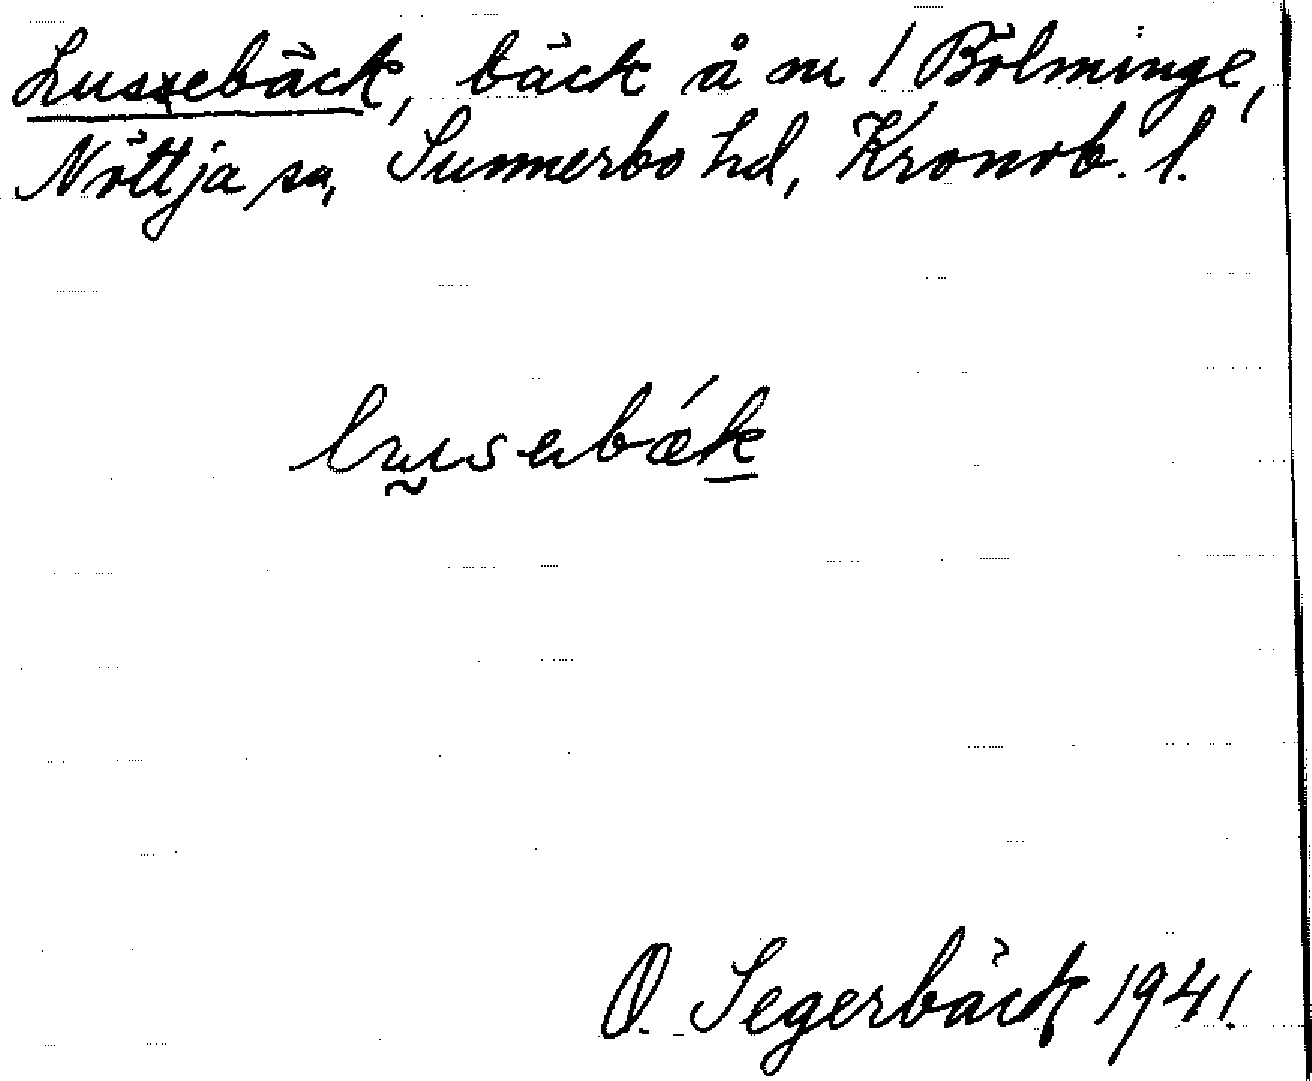 Lussebäck, bäck å nr 1 Bölminge,
Nöttja sn, Sunnerbo hd, Kronob. l.
lusebäk
O. Segerbäck 1941.